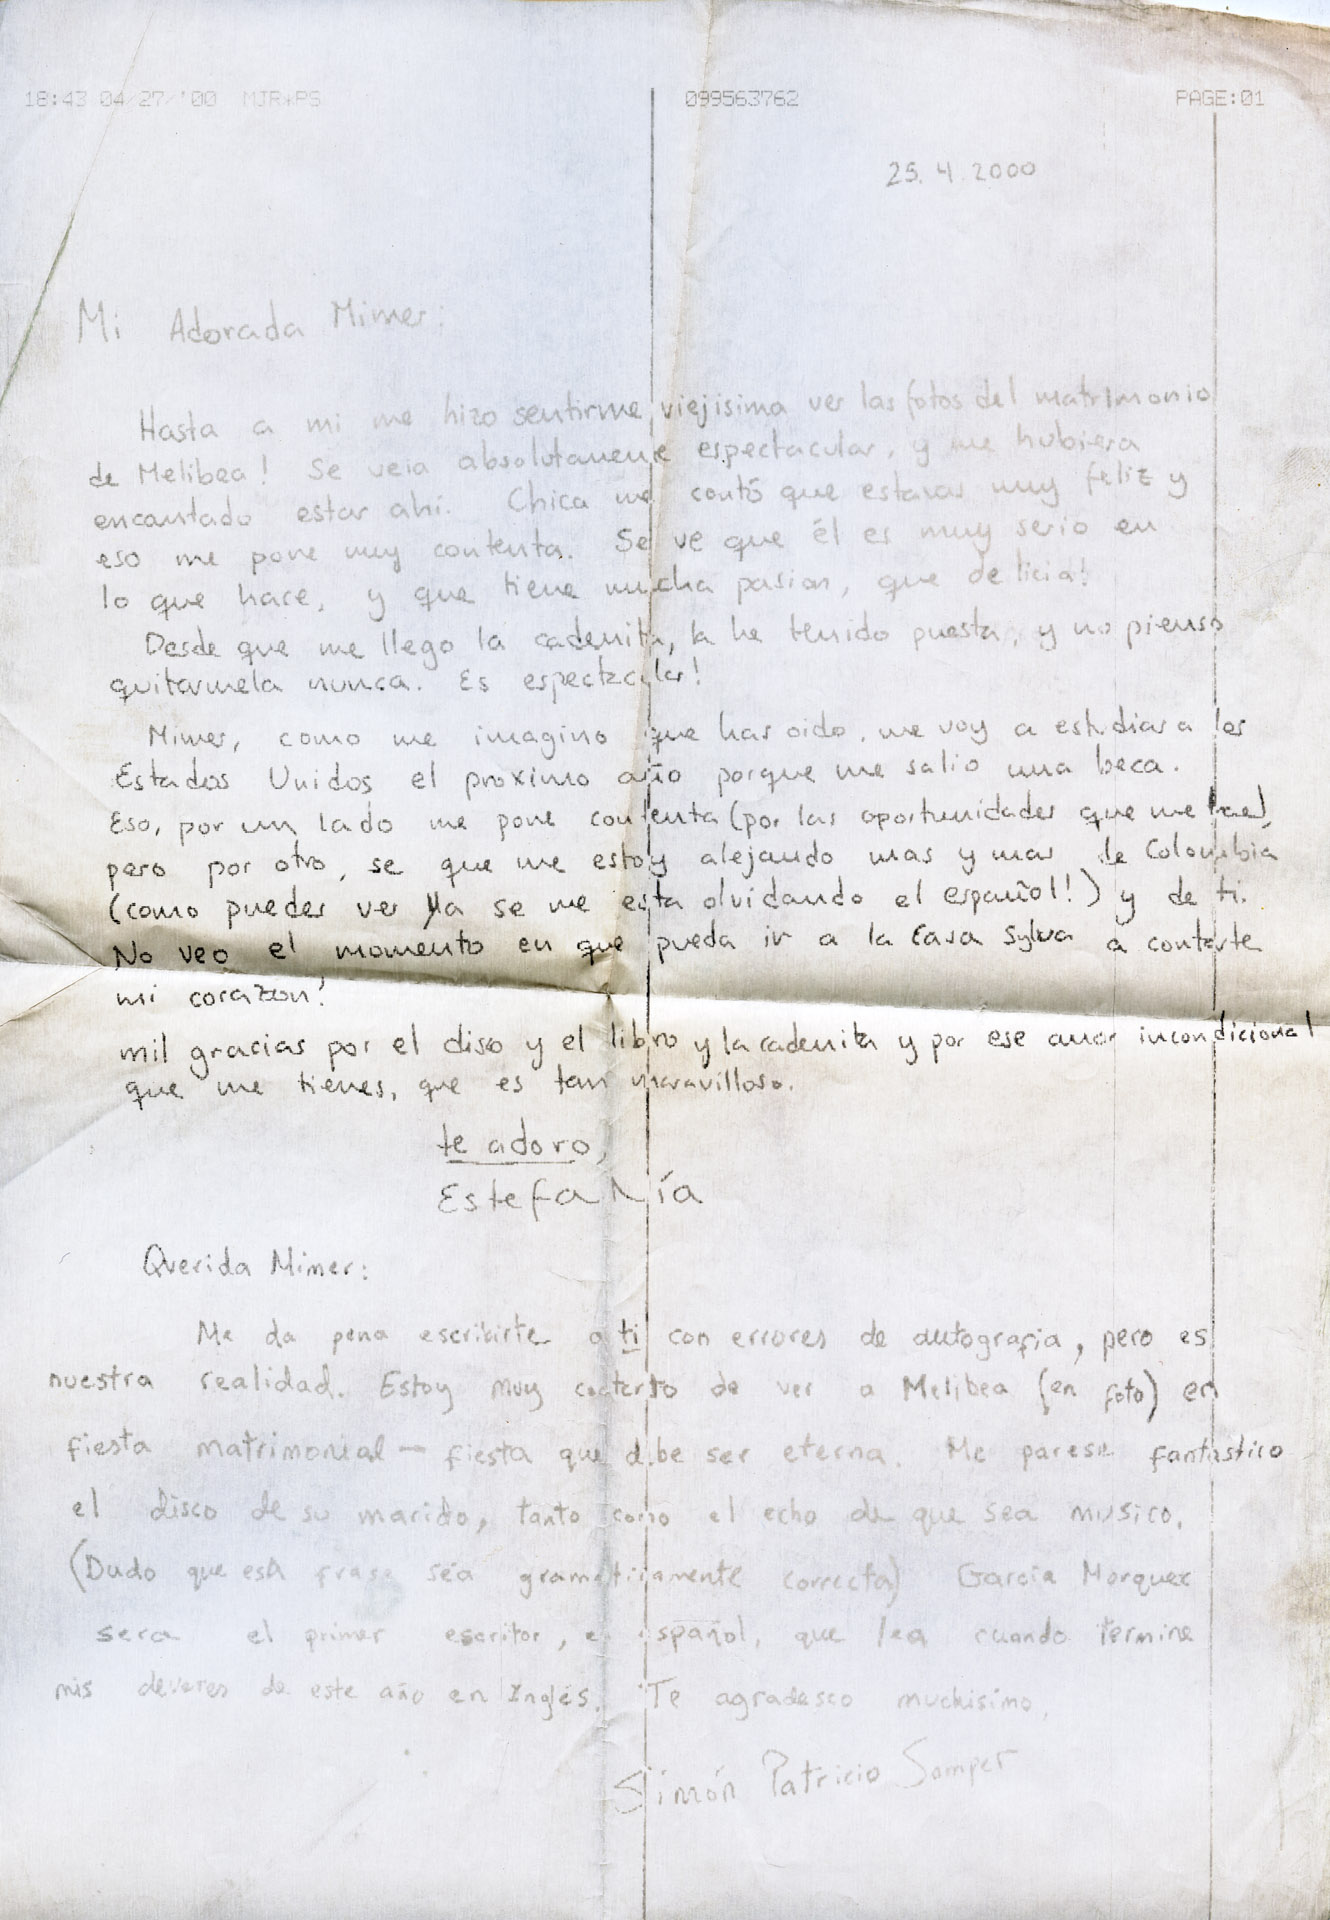 18:43 04/27/'00 MJR*PS 099563762 PAGE:01
25.4.2000
Mi Adorada Mimer:
Hasta a mi me hizo sentirme viejisima ver las fotos del matrimonio
de Melibea! Se veia absolutamente espectacular, y me hubiera
encantado estar ahí. Chica me contó que estavas muy feliz y
eso me pone muy contenta. Se ve que él es muy serio en
lo que hace, y que tiene mucha pasion, que delicia!
Desde que me llego la cadenita, la he tenido puesta, y no pienso
quitarmela nunca. Es espectacular!
Mimer, como me imagino que has oido, me voy a estudiar a los
Estados Unidos el proximo año porque me salio una beca.
Eso, por un lado me pone contenta (por las oportunidades que me trae),
pero por otro, se que me estoy alejando mas y mas de Colombia
(como puedes ver ya se me esta olvidando el español!) y de ti.
No veo el momento en que pueda ir a la Casa Sylva a contarte
mi corazon!
mil gracias por el disco y el libro y la cadenita y por ese amor incondicional
que me tienes, que es tan maravilloso.
te adoro,
Estefanía
Querida Mimer:
Me da pena escribirte a ti con errores de autografia, pero es
nuestra realidad. Estoy muy contento de ver a Melibea (en foto) en
fiesta matrimonial — fiesta que debe ser eterna. Me parese fantastico
el disco de su marido, tanto como el echo de que sea musico.
(Dudo que esta frase sea gramaticamente correcta) Garcia Marquez
sera el primer escritor, en español, que lea cuando termine
mis deveres de este año en Inglés. Te agradesco muchisimo,
Simón Patricio Samper